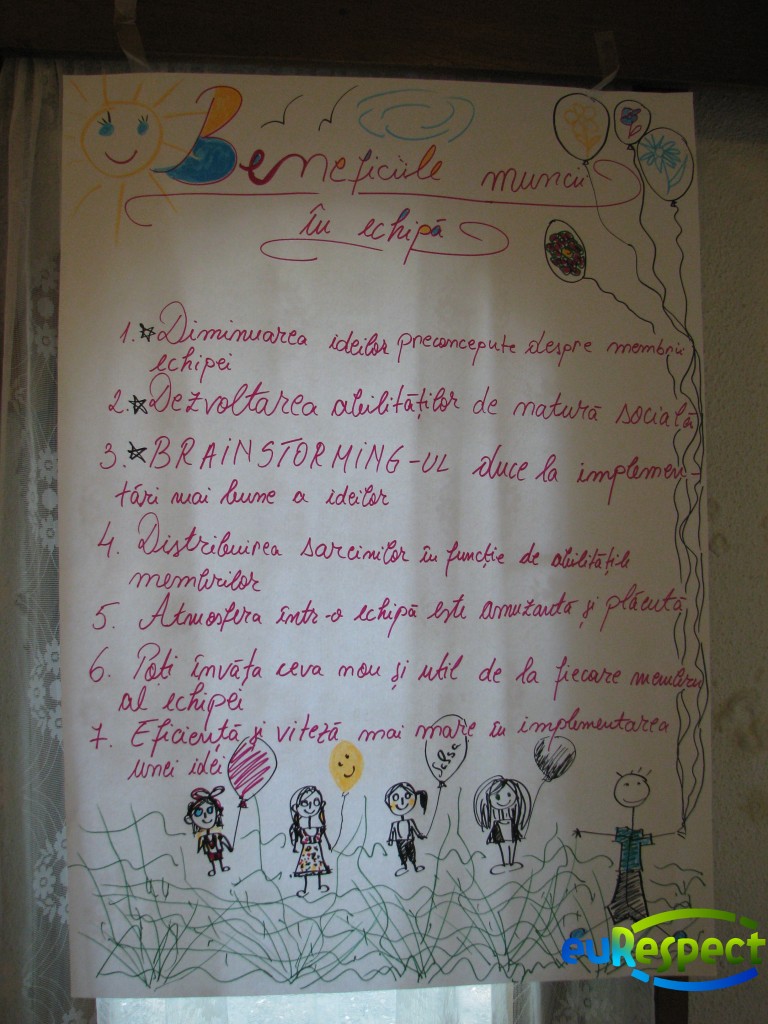 Beneficiile muncii
în echipă
1. Diminuarea ideilor preconcepute despre membrii
echipei
2. Dezvoltarea abilităților de natură socială
3. BRAINSTORMING-UL duce la implemen-
tări mai bune a ideilor
4. Distribuirea sarcinilor în funcție de abilitățile
membrilor
5. Atmosfera într-o echipă este amuzantă și plăcută
6. Poti învăța ceva nou și util de la fiecare membru
al echipei
7. Eficiență și viteză mai mare în implementarea
unei idei
Salsa
euRespect